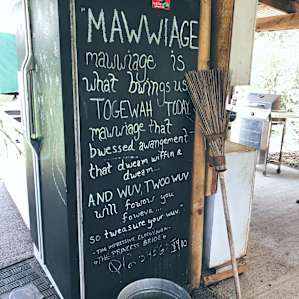 "MAWWIAGE
mawwiage is
what bwings us
TOGEWAH TODAY
mawwiage that
bwessed awangement
that dweam wiffin a
dweam...
AND WUV, TWOO WUV
will fowow you
foweva...
so tweasure your wuv."
- THE IMPRESSIVE CLERGYMAN -
"THE PRINCESS BRIDE"